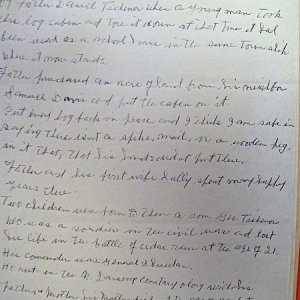 My Father Daniel Tichnor when a young man took
this log cabin and tore it down at that time it had
been used as a school house in the same township
where it now stands.
Father purchased an acre of land from his neighbor
Samuel Davis and put the cabin on it
Put every log back in place and I think I am safe in
saying there isnt a spike, nail, or a wooden peg
in it that, that his hands didnt put there.
Father and his first wife Sally spent many happy
years there.
Two children were born to them a son Geo Tichnor
who was a soldier in the civil war and lost
his life in the battle of cedar run at the age of 21.
His comander was General Sheridan.
He rest in the N. Lansing cemetary along with his
Father &amp; Mother his Mother